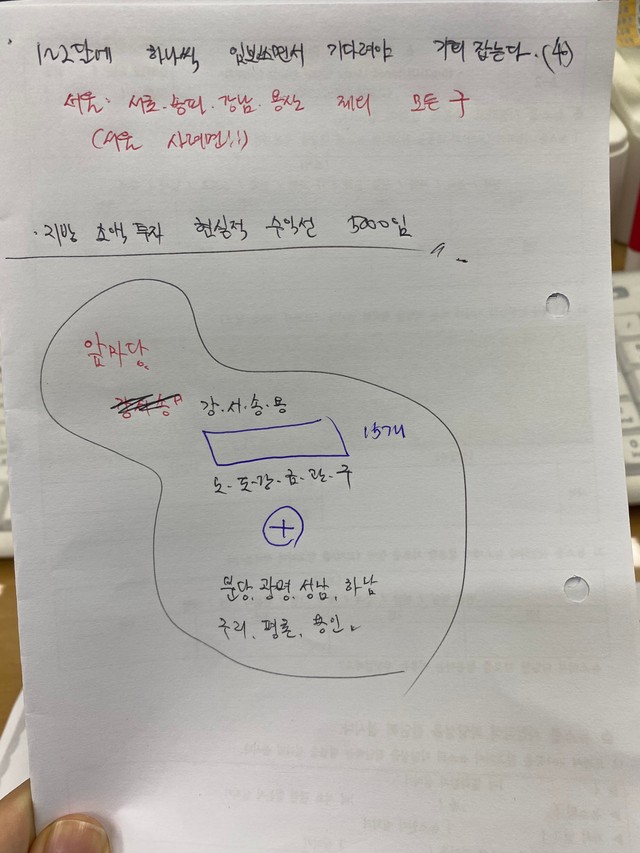 1~2달에 하나씩 임보쓰면서 기다려야 기회 잡는다. (40)
서울: 서초·송파·강남·용산 제외 모든 구
(서울 사려면!!)
· 지방 소액 투자 현실적 수익선 5000임
앞마당
강·서·송·용
15개
노·도·강·금·관·구
+
분당, 광명, 성남, 하남
구리, 평촌, 용인